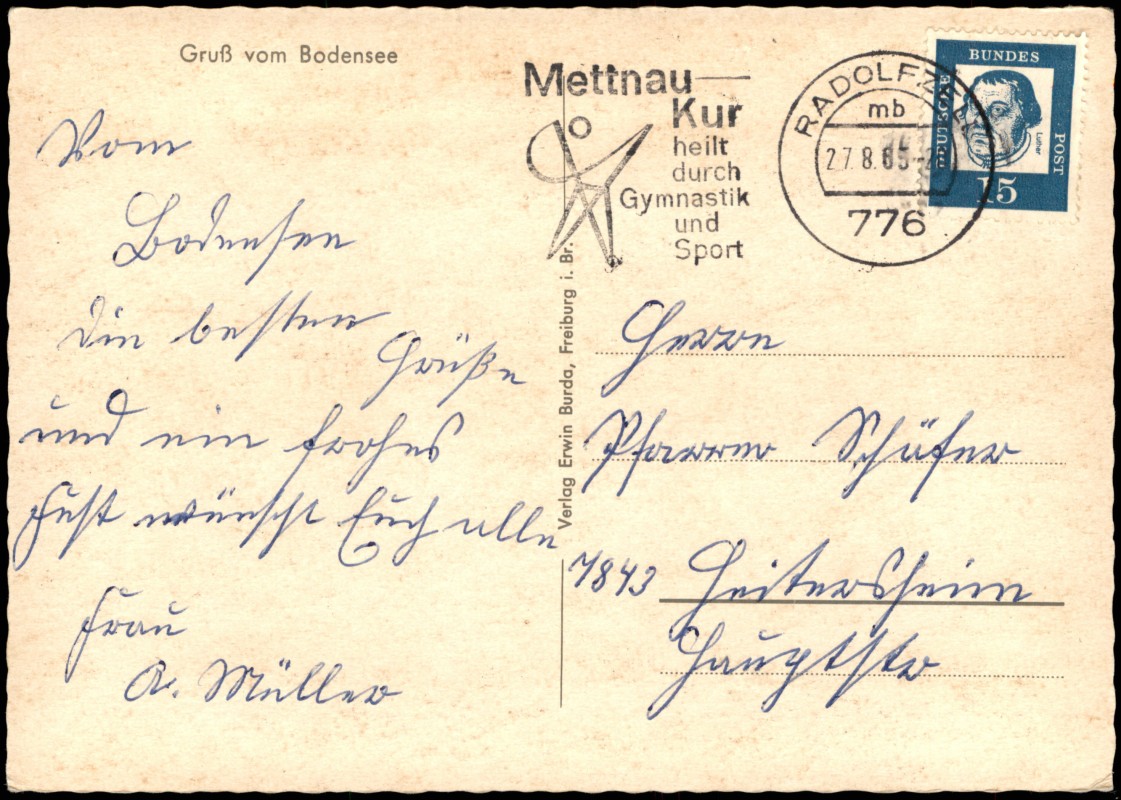 Gruß vom Bodensee
Vom
Bodensee
die besten
Grüße
und ein frohes
Fest wünscht Euch alle
Frau
A. Müller
Mettnau
Kur
heilt
durch
Gymnastik
und
Sport
RADOLFZELL
mb
27.8.65
776
DEUTSCHE
BUNDES
POST
Luther
15
Verlag Erwin Burda, Freiburg i. Br.
Herrn
Pfarrer Schäfer
7843 Heitersheim
Hauptstr